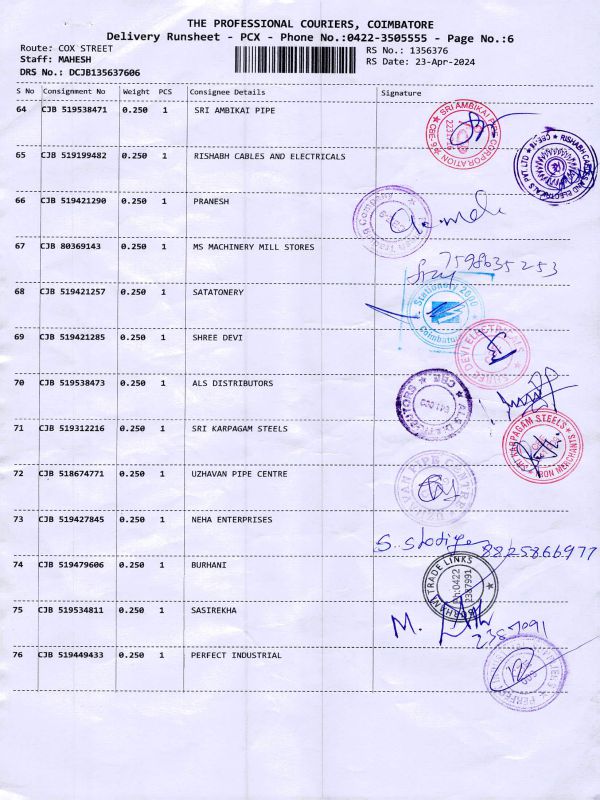 THE PROFESSIONAL COURIERS, COIMBATORE
Delivery Runsheet - PCX - Phone No.:0422-3505555 - Page No.:6
Route: COX STREET RS No.: 1356376
Staff: MAHESH RS Date: 23-Apr-2024
DRS No.: DCJB135637606
S No Consignment No Weight PCS Consignee Details Signature
64 CJB 519538471 0.250 1 SRI AMBIKAI PIPE
SRI AMBIKAI PIPE CORPORATION CBE-9
65 CJB 519199482 0.250 1 RISHABH CABLES AND ELECTRICALS
RISHABH CABLES AND ELECTRICALS PVT. LTD
66 CJB 519421290 0.250 1 PRANESH
67 CJB 80369143 0.250 1 MS MACHINERY MILL STORES
7598635253
68 CJB 519421257 0.250 1 SATATONERY
Stationery 2000 Coimbatore
69 CJB 519421285 0.250 1 SHREE DEVI
70 CJB 519538473 0.250 1 ALS DISTRIBUTORS
71 CJB 519312216 0.250 1 SRI KARPAGAM STEELS
KARPAGAM STEELS
72 CJB 518674771 0.250 1 UZHAVAN PIPE CENTRE
PIPE CENTRE
73 CJB 519427845 0.250 1 NEHA ENTERPRISES
8825866977
74 CJB 519479606 0.250 1 BURHANI
BURHANI TRADE LINKS Ph:0422 2387991
75 CJB 519534811 0.250 1 SASIREKHA
M.
76 CJB 519449433 0.250 1 PERFECT INDUSTRIAL